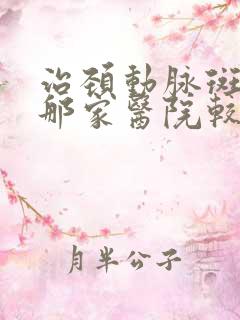 治頸動脈斑
那家醫院較
月半公子